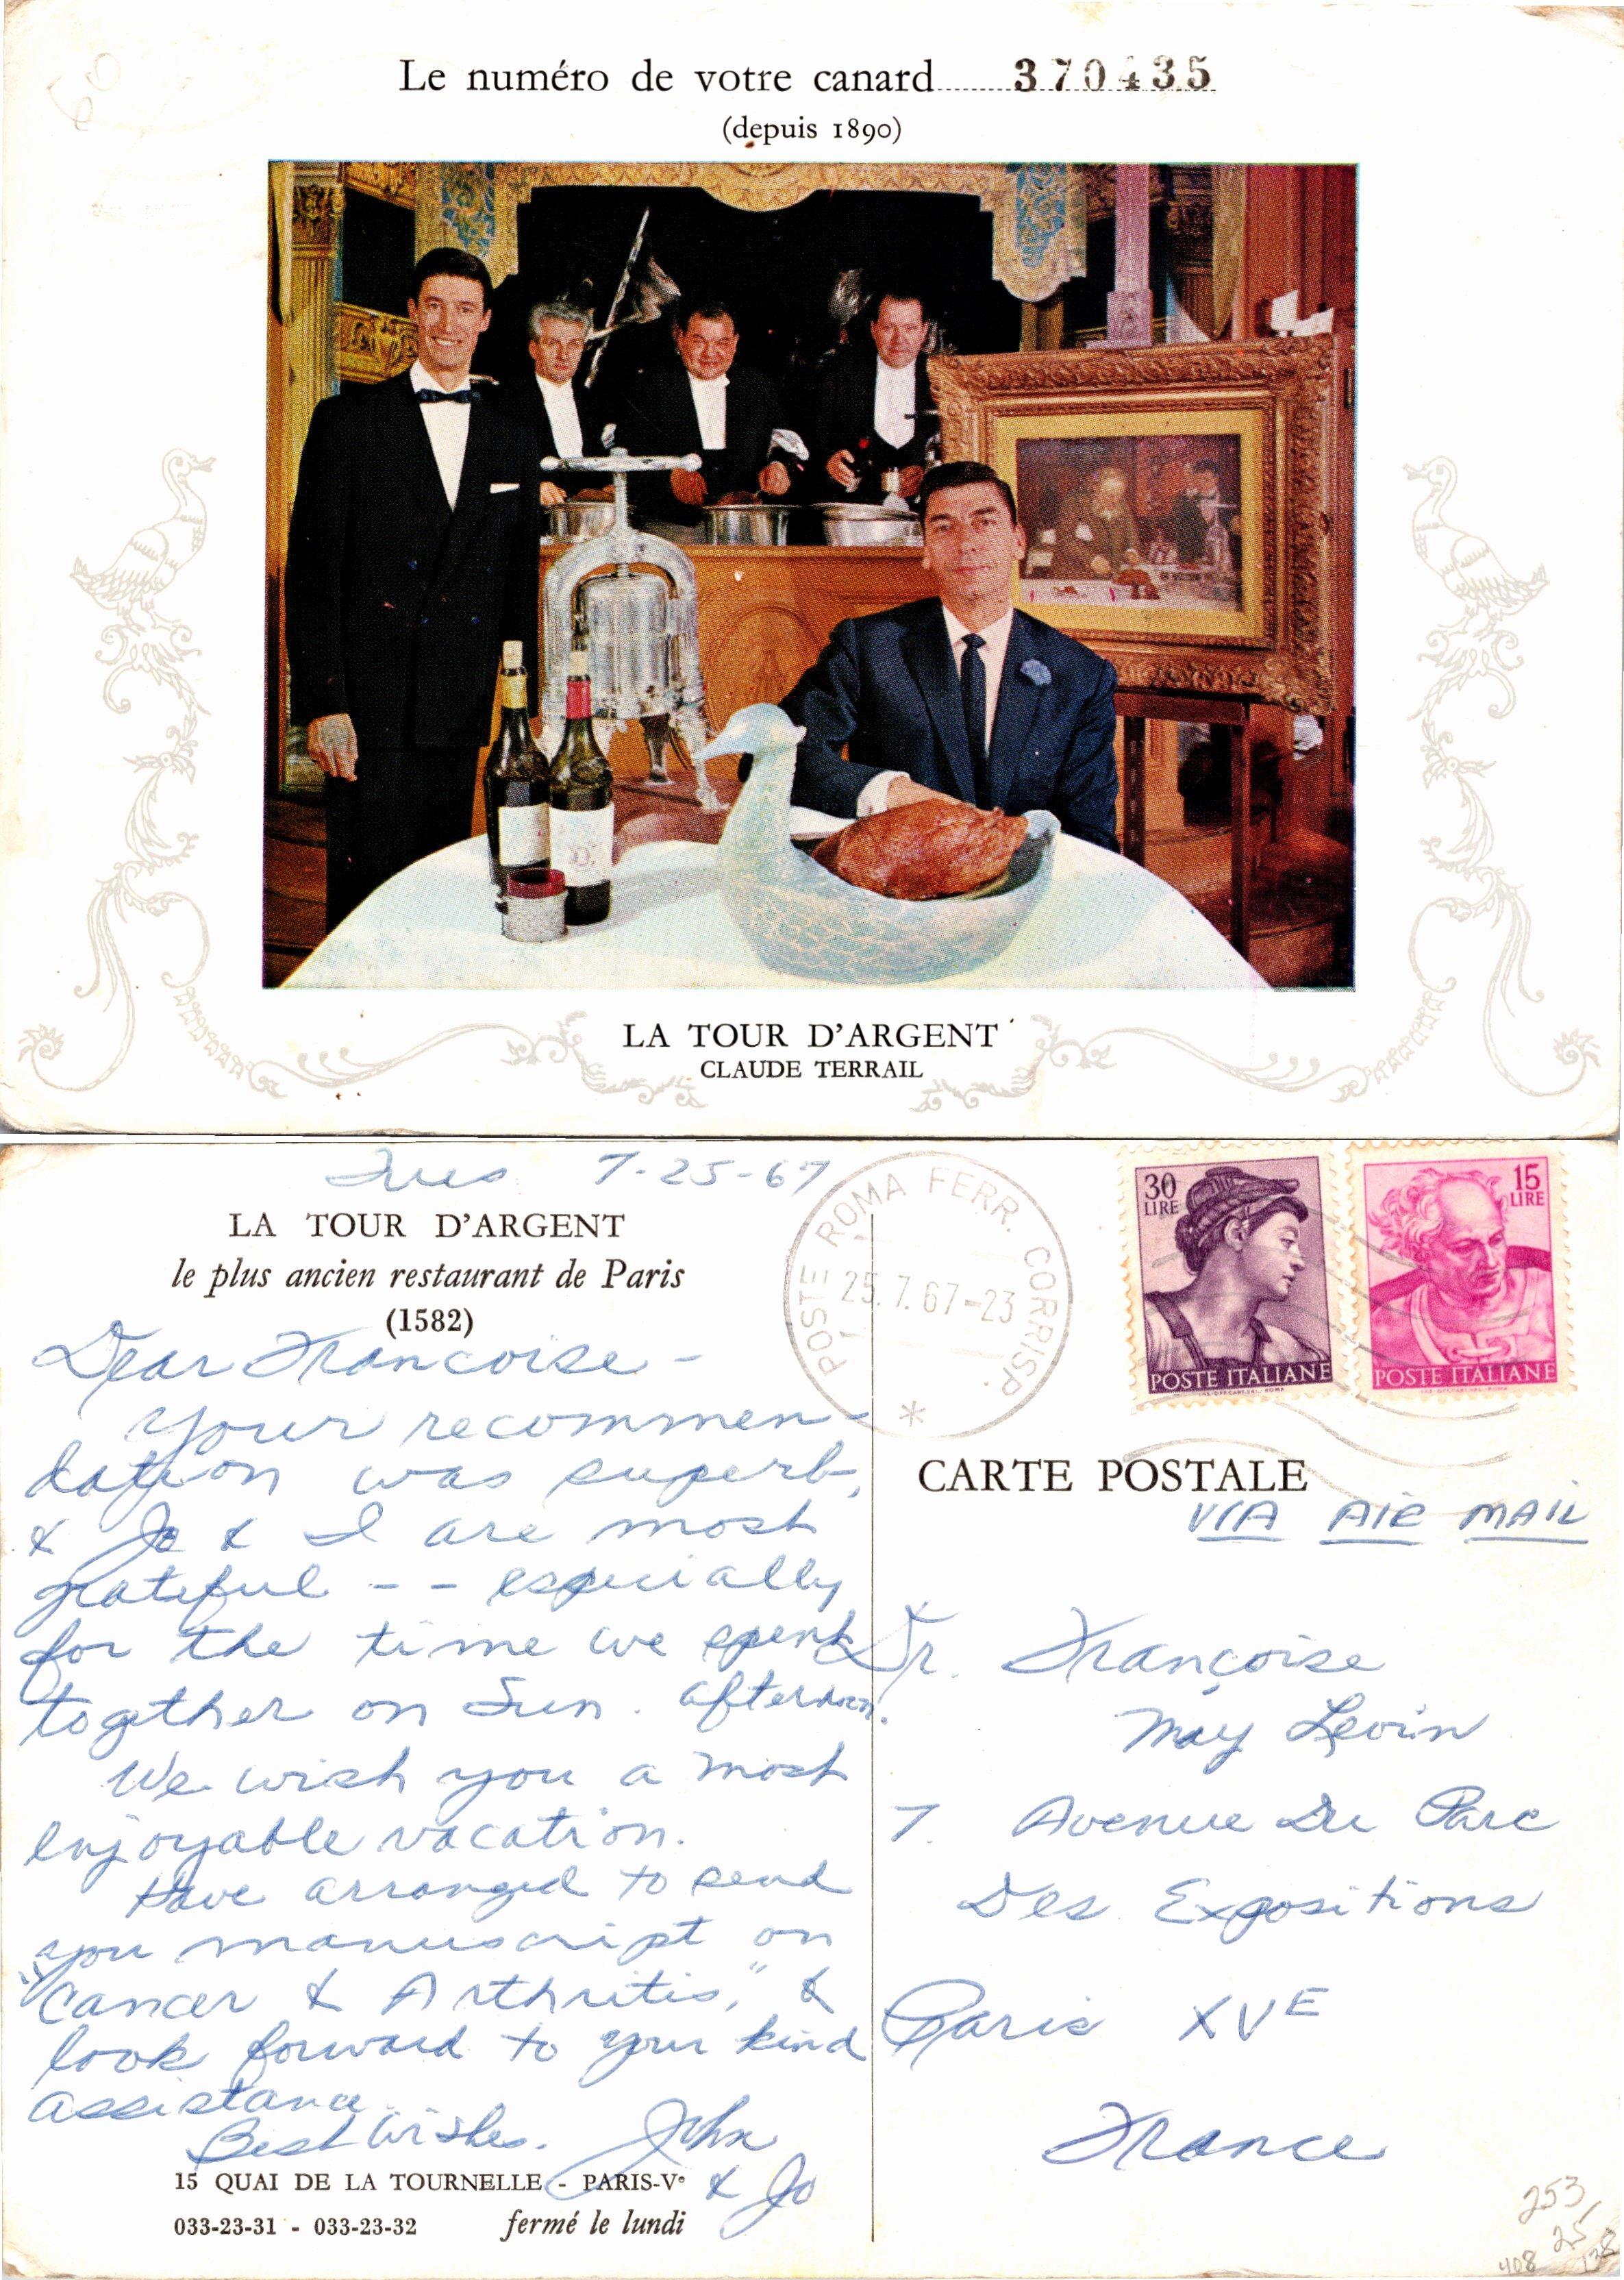 Le numéro de votre canard 370435
(depuis 1890)
LA TOUR D'ARGENT
CLAUDE TERRAIL
Tues 7-25-67
LA TOUR D'ARGENT
le plus ancien restaurant de Paris
(1582)
Dear Francoise -
Your recommen-
dation was superb,
& Jo & I are most
grateful -- especially
for the time we spent
together on Sun. afternoon.
We wish you a most
enjoyable vacation.
Have arranged to send
you manuscript on
"Cancer & Arthritis," &
look forward to your kind
assistance.
Best Wishes.
John
& Jo
15 QUAI DE LA TOURNELLE - PARIS-Ve
033-23-31 - 033-23-32 fermé le lundi
POSTE ROMA FERR. CORRISP.
25.7.67-23
*
30
LIRE
POSTE ITALIANE
15
LIRE
POSTE ITALIANE
CARTE POSTALE
VIA AIR MAIL
Dr. Françoise
May Levin
7. Avenue Du Parc
Des Expositions
Paris XVE
France
253
25
408 138